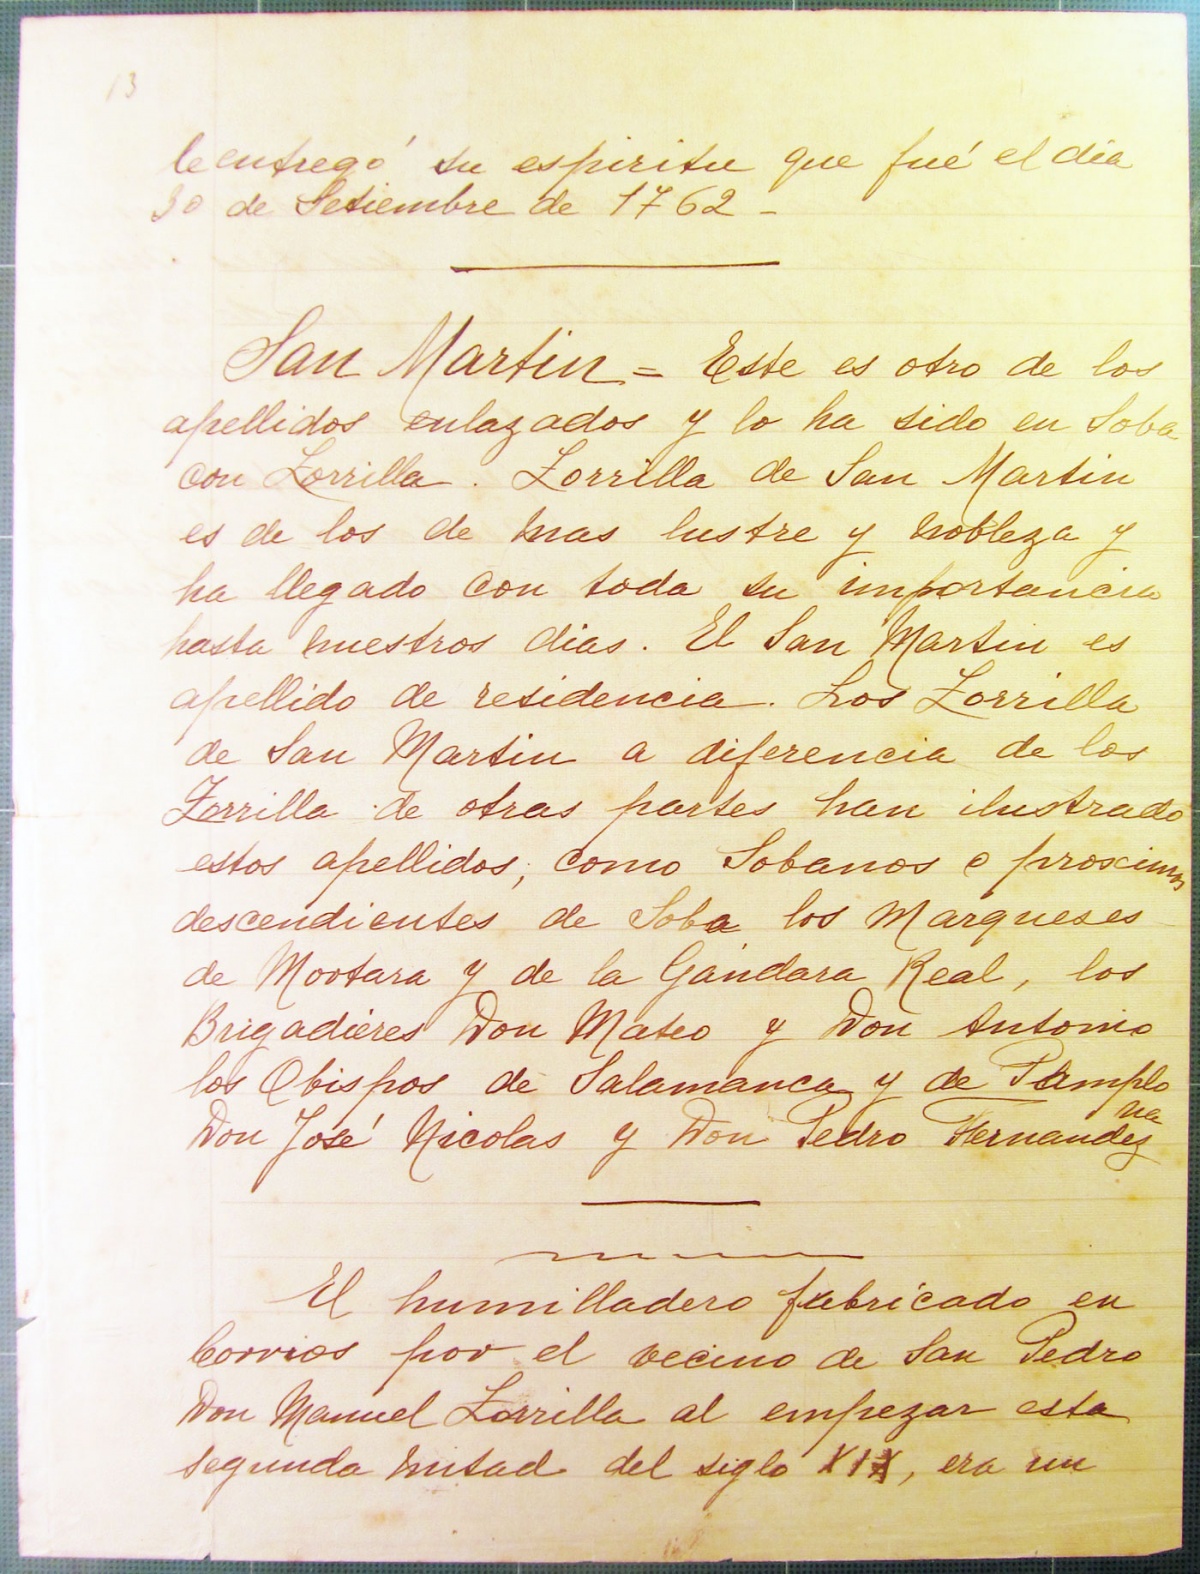 13
le entregó su espiritu que fué el dia
30 de Setiembre de 1762 -
San Martin = Este es otro de los
apellidos enlazados y lo ha sido en Soba
con Zorrilla. Zorrilla de San Martin
es de los de mas lustre y nobleza y
ha llegado con toda su importancia
hasta nuestros dias. El San Martin es
apellido de residencia. Los Zorrilla
de San Martin a diferencia de los
Zorrilla de otras partes han ilustrado
estos apellidos, como Sobanos o proscimos
descendientes de Soba los Marqueses
de Mootara y de la Gándara Real, los
Brigadieres Don Mateo y Don Antonio
los Obispos de Salamanca y de Pamplo
na
Don José Nicolas y Don Pedro Hernandez
El humilladero fabricado en
por el vecino de San Pedro
Don Manuel Zorrilla al empezar esta
segunda mitad del siglo XIX, era un